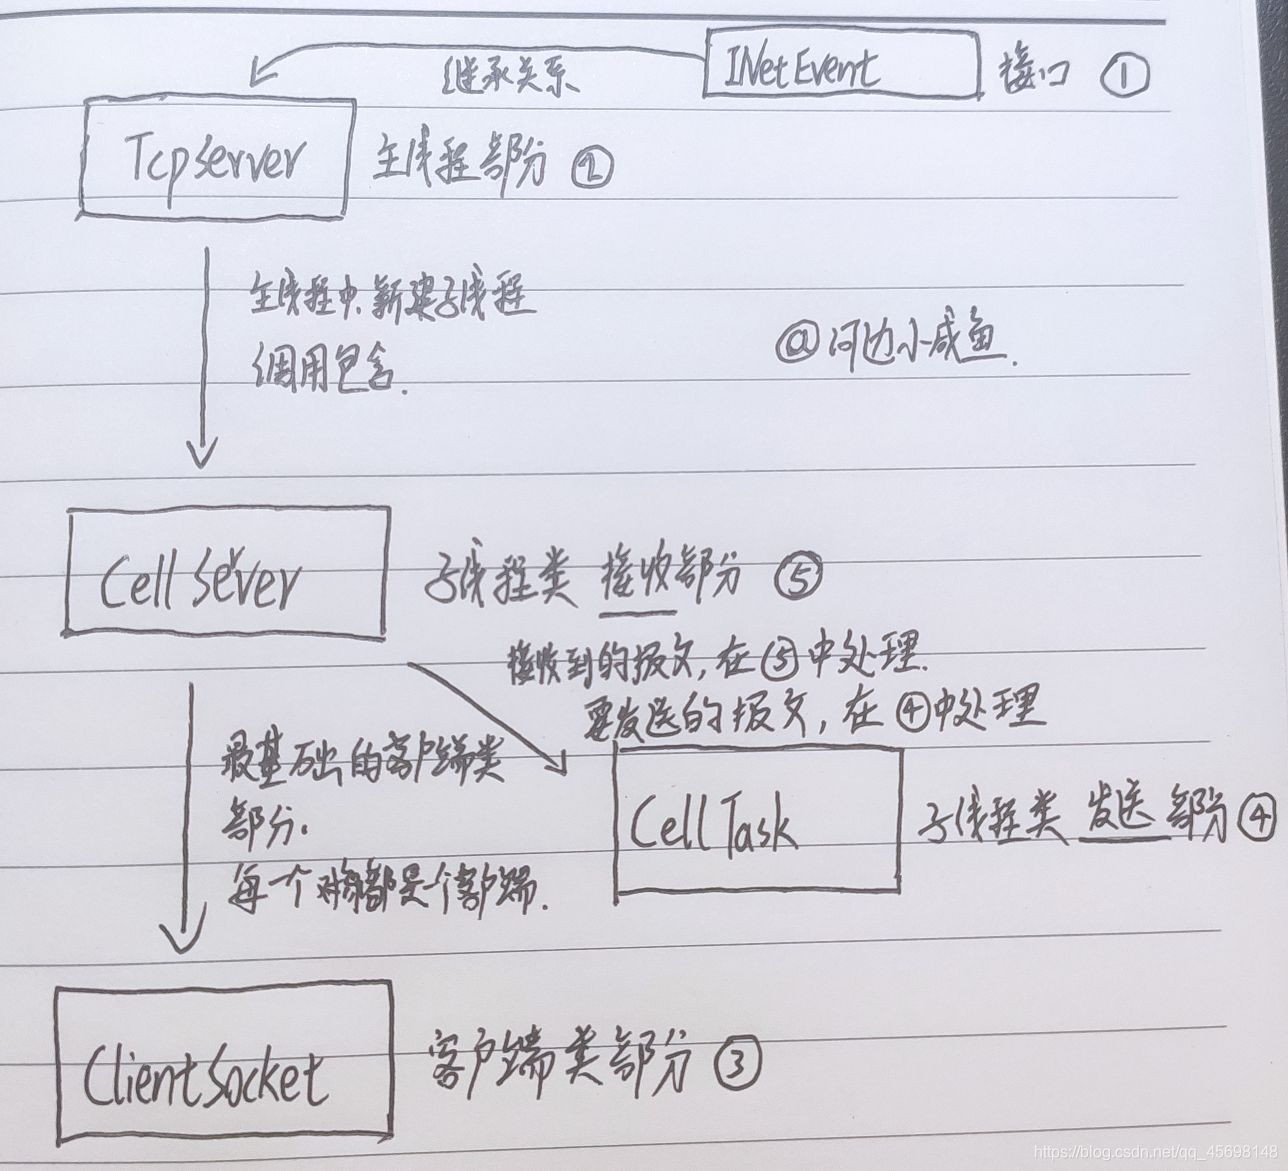 INetEvent 接口 ①
继承关系
TcpServer 主线程部分 ②
主线程中,新建子线程
调用包含.
@河边小咸鱼.
Cell Server 子线程类 接收部分 ⑤
接收到的报文,在⑤中处理.
要发送的报文,在④中处理
最基础的客户端类
部分.
每一个对象都是一个客户端.
Cell Task 子线程类 发送部分 ④
ClientSocket 客户端类部分 ③
https://blog.csdn.net/qq_45698148